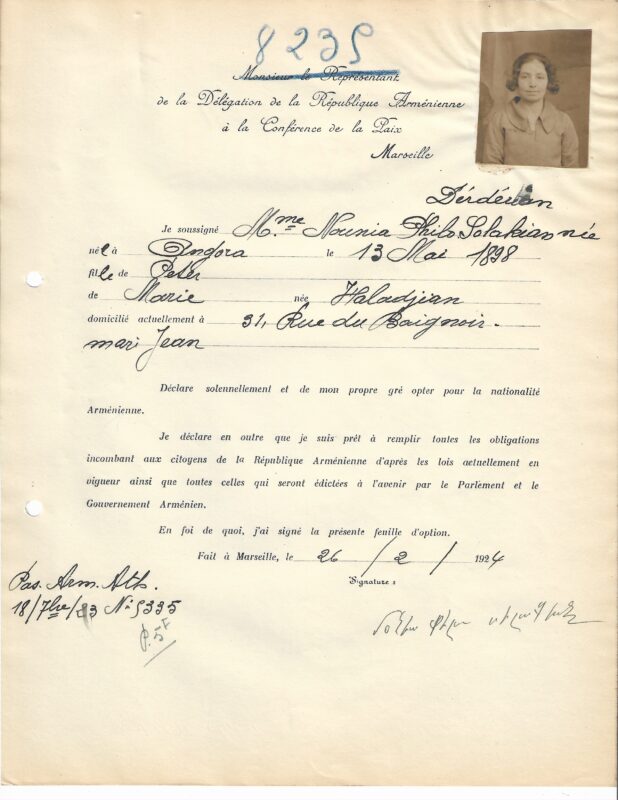 8235
Monsieur le Représentant
de la Délégation de la République Arménienne
à la Conférence de la Paix
Marseille
Dérdérian
Je soussigné Mme Nounia Philo Solakian née
néeà Angora le 13 Mai 1898
fille de Peter
de Marie née Haladjian
domicilié actuellement à 31, Rue du Baignoir.
mari Jean
Déclare solennellement et de mon propre gré opter pour la nationalité
Arménienne.
Je déclare en outre que je suis prêt à remplir toutes les obligations
incombant aux citoyens de la République Arménienne d'après les lois actuellement en
vigueur ainsi que toutes celles qui seront édictées à l'avenir par le Parlement et le
Gouvernement Arménien.
En foi de quoi, j'ai signé la présente feuille d'option.
Fait à Marseille, le 26 / 2 / 1924
Signature :
Pas. Arm. Ath.
18/7bre/23 No 5335
P. 5F